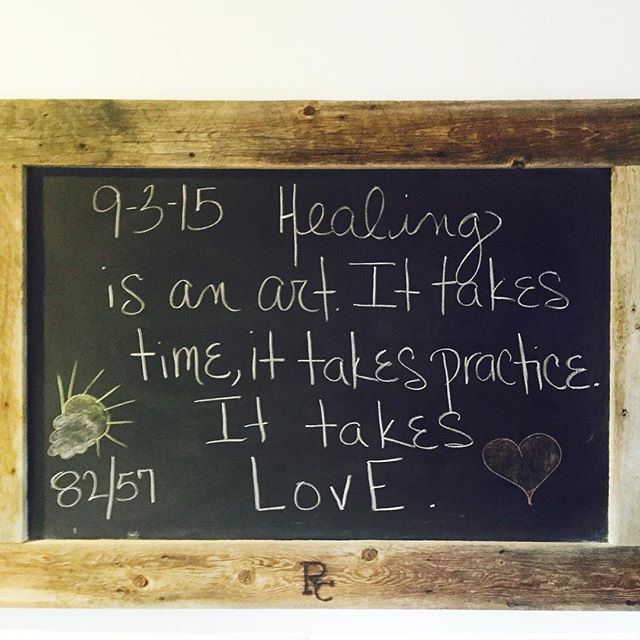 9-3-15 Healing
is an art. It takes
time, it takes practice.
It takes
LovE.
82/57
PC